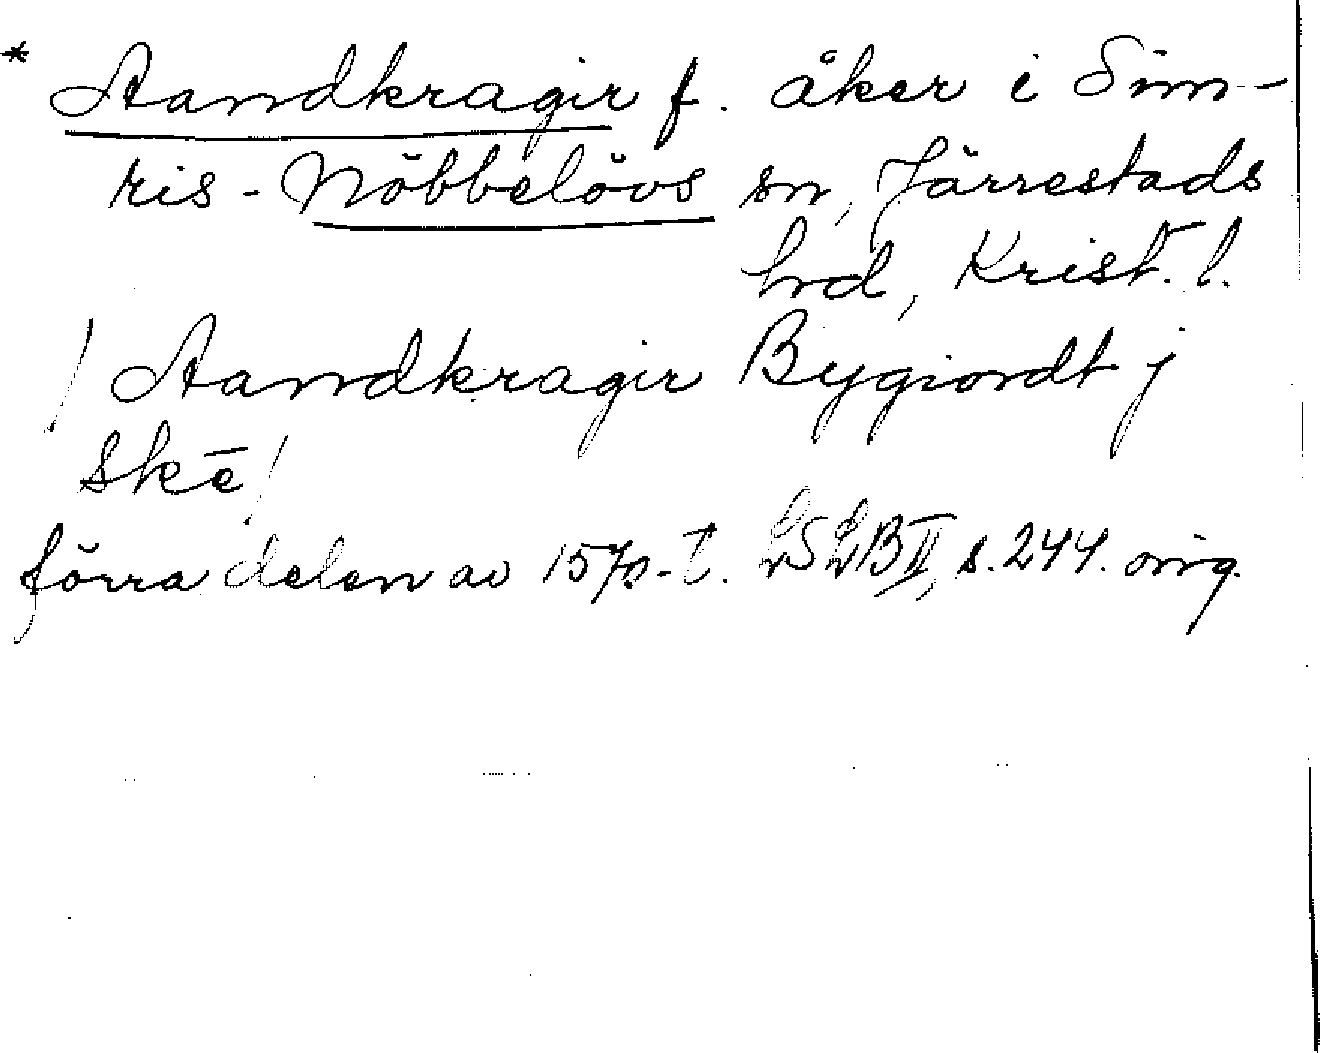 * Aandkragir f. åker i Sim-
ris-Nöbbelövs sn, Järrestads
hrd, Krist. l.
/ Aandkragir Bygiordt j
skē /
förra delen av 1570-t. LSLB II, s. 244. orig.